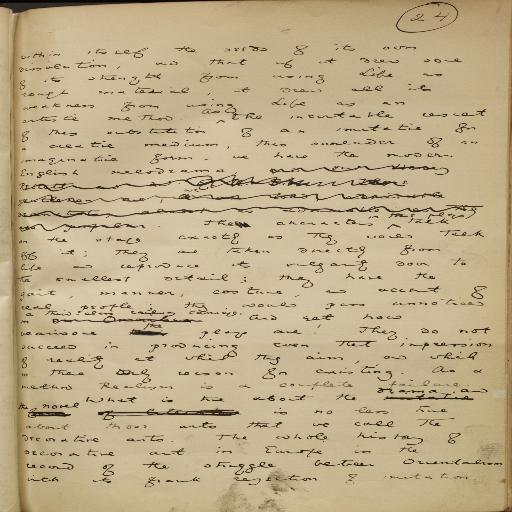 24
within itself the seeds of its own
dissolution, and that if it drew some
of its strength from using life as
rough material, it drew all its
weakness from using life as an
artistic method. As the inevitable result
of this substitution of an imitative for
a creative medium, this surrender of an
imaginative form, we have the modern
English melodrama
The characters in these plays talk
on the stage exactly as they would talk
off it; they are taken directly from
life and reproduce its vulgarity down to
the smallest detail; they have the
gait, manner, costume, and accent of
real people; they would pass unnoticed
in a third class railway carriage. And yet how
wearisome the plays are! They do not
succeed in producing even that impression
of reality at which they aim, and which
is their only reason for existing. As a
method Realism is a complete failure.
What is true about the drama and
the novel is no less true
about those arts that we call the
decorative arts. The whole history of
decorative art in Europe is the
record of the struggle between Orientalism
with its frank rejection of imitation